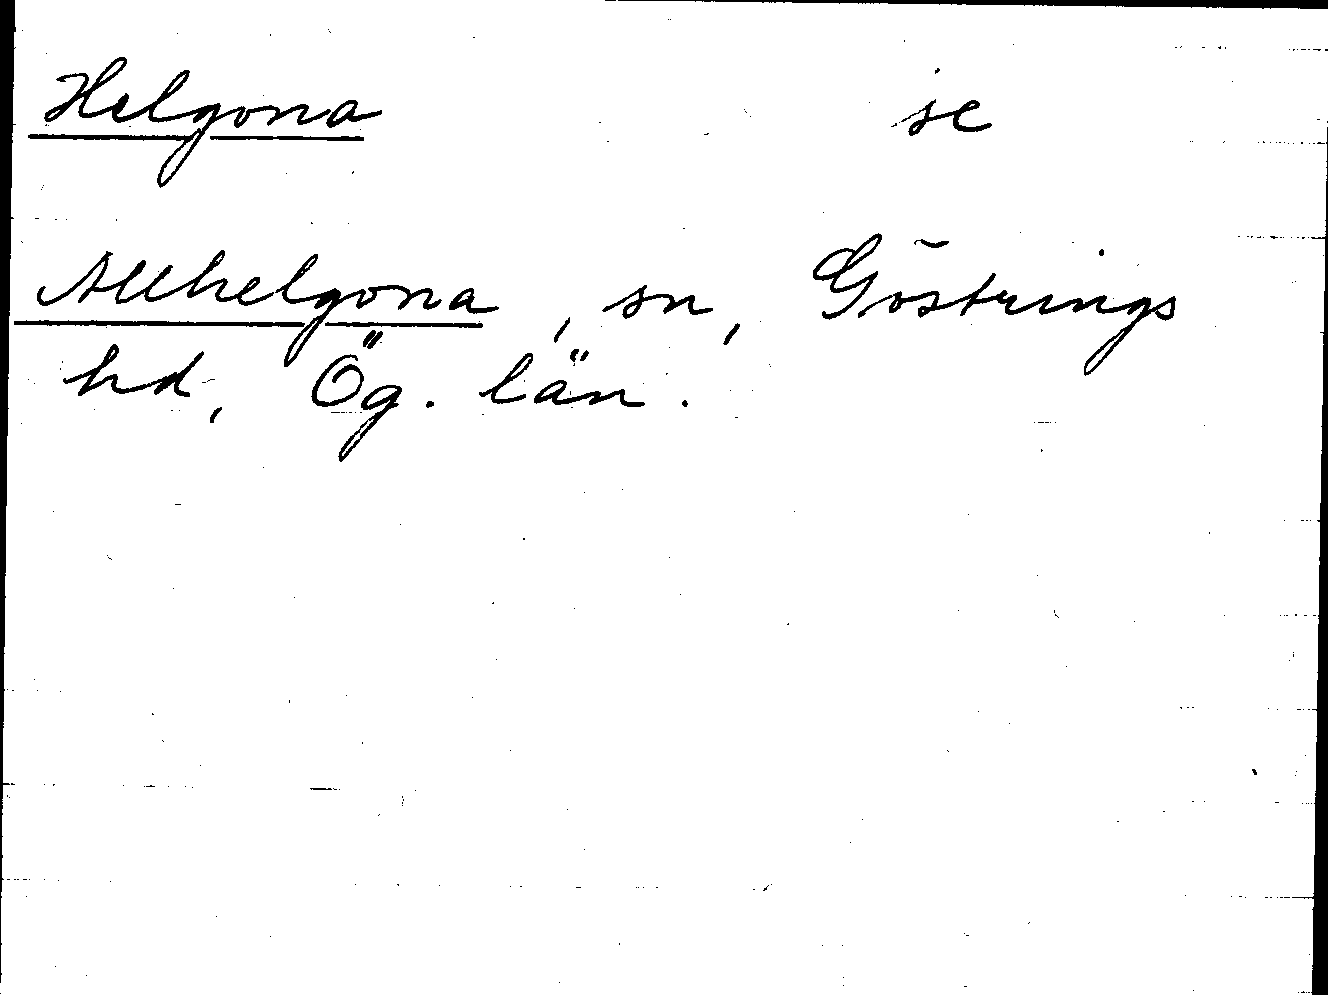 Helgona se
Allhelgona, sn, Göstrings
hd, Ög. län.